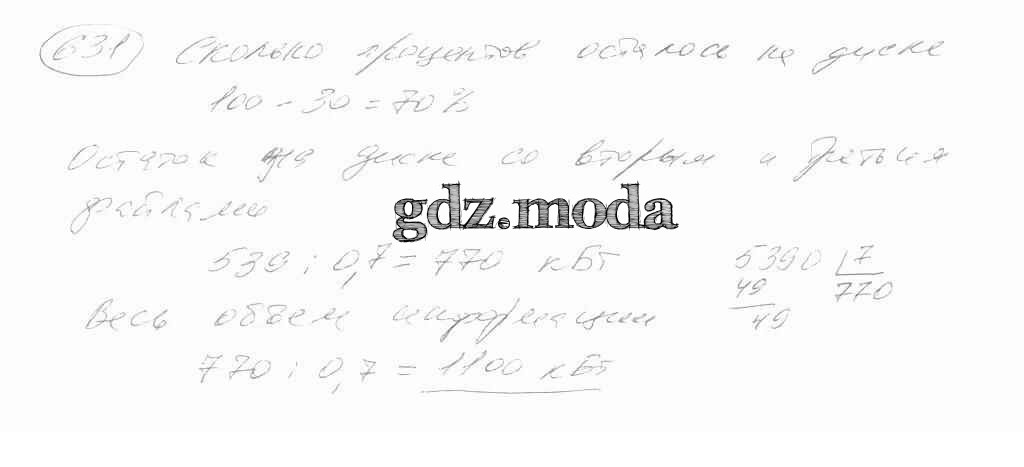 631 Сколько процентов осталось на диске
100 - 30 = 70%
Остаток на диске со вторым и третьим
файлами
gdz.moda
539 : 0,7 = 770 кБт
5390 7
49 770
49
Весь объем информации
770 : 0,7 = 1100 кБт